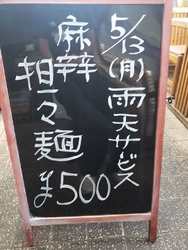 5/13(月)雨天サービス
麻辣
担々麺
¥500